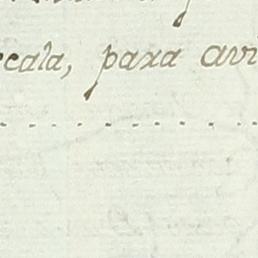 cala, para avi